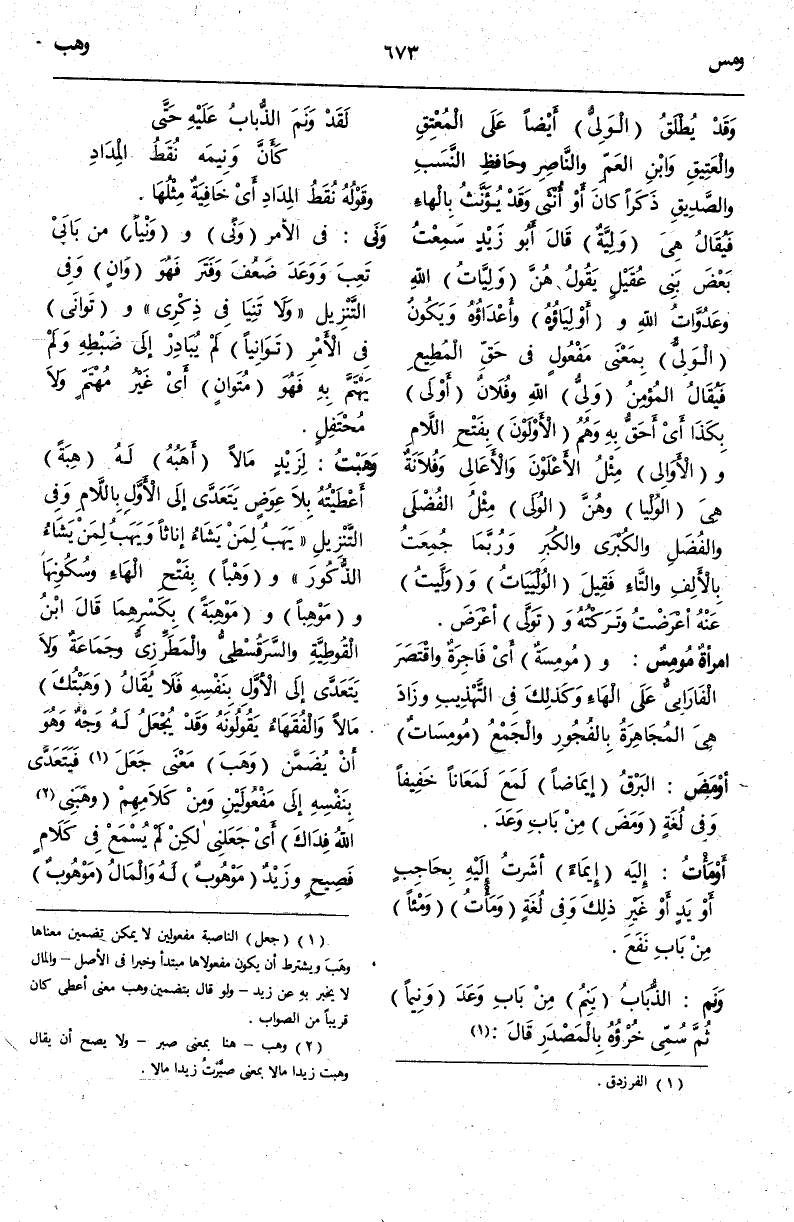 ومس
٦٧٣
وهب
وَقَدْ يُطْلَقُ (الْوَلِيُّ) أَيْضاً عَلَى الْمُعْتِقِ
والْعَتِيقِ وَابْنِ العَمِّ والنَّاصِرِ وحَافِظِ النَّسَبِ
والصَّدِيقِ ذَكَراً كانَ أَوْ أُنْثَى وَقَدْ يُؤَنَّثُ بِالْهاءِ
فَيُقَالُ هِىَ (وَلِيَّةٌ) قَالَ أَبُو زَيْدٍ سَمِعْتُ
بَعْضَ بَنِى عُقَيْلٍ يَقُولُ هُنَّ (وَلِيَّاتُ) اللهِ
وعَدُوَّاتُ اللهِ و (أَوْلِيَاؤُهُ) وأَعْدَاؤُهُ وَيَكُونُ
(الْوَلِيُّ) بِمَعْنَى مَفْعُولٍ فى حَقِّ المُطِيعِ
فَيُقَالُ المُؤْمِنُ (وَلِيُّ) اللهِ وفُلَانٌ (أَوْلَى)
بِكَذَا أَىْ أَحَقُّ بِهِ وَهُمُ (الْأَوْلَوْنَ) بِفَتْحِ اللَّامِ
و (الْأَوَالِى) مِثْلُ الْأَعْلَوْنَ وَالْأَعَالِى وَفُلَانَةُ
هِىَ (الْوُلْيَا) وهُنَّ (الْوُلَى) مِثْلُ الْفُضْلَى
والْفُضَلِ والْكُبْرَى والْكُبَرِ وَرُبَّمَا جُمِعَتْ
بِالْأَلِفِ والتَّاءِ فَقِيلَ (الْوُلْيَيَاتُ) وَ(وَلَّيتُ)
عَنْهُ أعْرَضْتُ وتَرَكْتُهُ وَ (تَوَلَّى) أعْرَضَ .
امرأةٌ مُومِسٌ : و (مُومِسَةٌ) أَىْ فَاجِرَةٌ واقْتَصَرَ
الْفَارَابِىُّ عَلَى الْهَاءِ وَكَذلِكَ فى التَّهْذِيبِ وزَادَ
هِىَ المُجَاهِرَةُ بِالْفُجُورِ والْجَمْعُ (مُومِسَاتٌ)
أَوْمَضَ : البَرْقُ (إِيمَاضاً) لَمَعَ لَمَعَاناً خَفِيفاً
وَفى لُغَةٍ (وَمَضَ) مِنْ بَابِ وَعَدَ .
أَوْمَأْتُ : إِلَيْهِ (إِيمَاءً) أَشَرْتُ إِلَيْهِ بِحَاجِبٍ
أَوْ يَدٍ أَوْ غَيْرِ ذلِكَ وَفى لُغَةٍ (وَمَأْتُ) (وَمْئاً)
مِنْ بَابِ نَفَعَ .
وَنَمَ : الذُّبَابُ (يَنِمُ) مِنْ بَابِ وَعَدَ (وَنِيماً)
ثُمَّ سُمِّىَ خُرْؤُهُ بِالْمَصْدَرِ قَالَ :(١)
(١) الفرزدق .
لَقَدْ وَنَمَ الذُّبابُ عَلَيْهِ حَتَّى
كَأَنَّ وَنِيمَه نُقَطُ الْمِدَادِ
وقَوْلُهُ نُقَطُ المِدَادِ أَىْ خَافِيَةٌ مِثْلُهَا .
وَنَى : فى الأمر (وَنًى) و (وَنْياً) من بَابَىْ
تَعِبَ وَوَعَدَ ضَعُفَ وَفَتَرَ فَهُوَ (وَانٍ) وَفى
التَّنْزِيلِ «وَلَا تَنِيَا فى ذِكْرِى» و (تَوانَى)
فى الْأَمْرِ (تَوَانِياً) لَمْ يُبَادِرْ إِلَى ضَبْطِهِ وَلَمْ
يَهْتَمَّ بِهِ فَهُوَ (مُتَوانٍ) أَىْ غَيْرُ مُهْتَمٍّ وَلَا
مُحْتَفِلٍ .
وَهَبْتُ : لِزَيْدٍ مَالاً (أَهَبُهُ) لَهُ (هِبَةً)
أَعْطَيْتُهُ بِلَا عِوَضٍ يَتَعَدَّى إِلَى الْأَوَّلِ بِاللَّامِ وَفى
التَّنْزِيلِ «يَهَبُ لِمَنْ يَشَاءُ إِنَاثاً وَيَهَبُ لِمَنْ يَشَاءُ
الذُّكُورَ» و (وَهْباً) بِفَتْحِ الْهَاءِ وسُكُونِهَا
و (مَوْهِباً) و (مَوْهِبَةً) بِكَسْرِهِمَا قَالَ ابْنُ
الْقُوطِيَّةِ والسَّرَقُسْطِىُّ والْمُطَرِّزِىُّ وجَمَاعَةٌ وَلَا
يَتَعَدَّى إِلَى الْأَوَّلِ بِنَفْسِهِ فَلَا يُقَالُ (وَهَبْتُكَ)
مَالاً وَالْفُقَهَاءُ يَقُولُونَهُ وَقَدْ يُجْعَلُ لَهُ وَجْهٌ وَهُوَ
أَنْ يُضَمَّنَ (وَهَبَ) مَعْنَى جَعَلَ (١) فَيَتَعَدَّى
بِنَفْسِهِ إِلَى مَفْعُولَيْنِ وَمِنْ كَلَامِهِمْ (وهَبَنِى (٢)
اللهُ فِدَاكَ) أَىْ جَعَلَنِى لكِنْ لَمْ يُسْمَعْ فى كَلَامٍ
فَصِيحٍ وزَيْدٌ (مَوْهُوبٌ) لَهُ وَالْمَالُ (مَوْهُوبٌ)
(١) (جعل) الناصبة مفعولين لا يمكن تضمين معناها
وهَبَ ويشترط أن يكون مفعولاها مبتدأ وخبرا فى الأصل – والمال
لا يخبر به عن زيد – ولو قال بتضمين وهب معنى أعطى كان
قريباً من الصواب .
(٢) وهب – هنا بمعنى صير – ولا يصح أن يقال
وهبت زيدا مالا بمعنى صيَّرْتُ زيدا مالا .